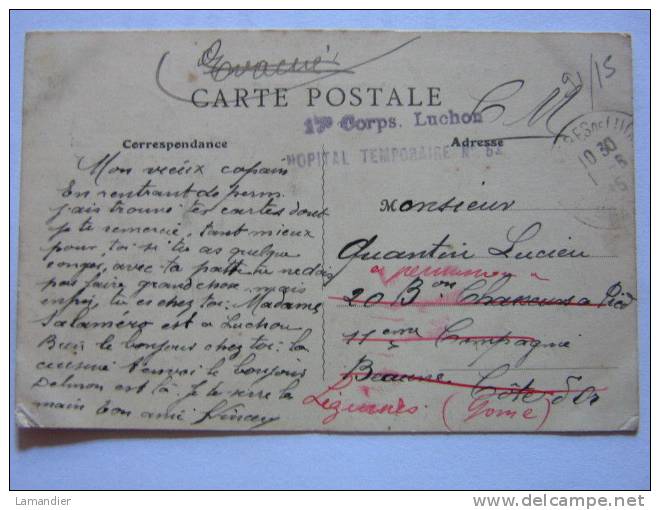 Evacué
9/15
CARTE POSTALE
17e Corps. Luchon
C M
Correspondance
Adresse
HOPITAL TEMPORAIRE N° 52
10 30
Mon vieux copain
En rentrant de perm
j'ais trouvé tes cartes dont
je te remercie, tant mieux
pour toi si tu as quelque
conges, avec ta patte tu ne dois
pas faire grand chose mais
enfin, tu es chez toi. Madame
Salaméro est a Luchon
Bien le bonjour chez toi. la
cuisine t'envoi le bonjour
Delmon est là Je te serre la
main ton ami
Monsieur
Quantin Lucien
en permission
20 Bon Chasseurs a Pied
11eme Compagnie
Beaune Côte d'Or
Lézinnes (Yonne)
Lamandier
delcampe.net